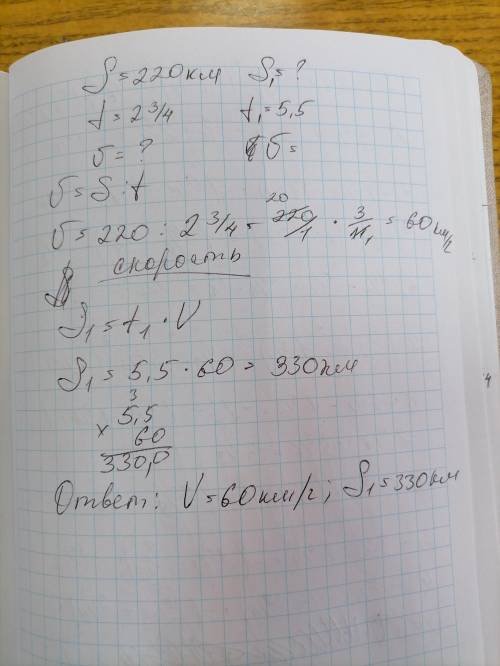 S = 220 км    S₁ = ?
t = 2 3/4    t₁ = 5,5
υ = ?    υ =
υ = S : t
υ = 220 : 2 3/4 = 220/1 · 3/11 = 60 км/г
20    1
скорость
S₁ = t₁ · V
S₁ = 5,5 · 60 = 330 км
3
× 5,5
60
330,0
Ответ: V = 60 км/г; S₁ = 330 км